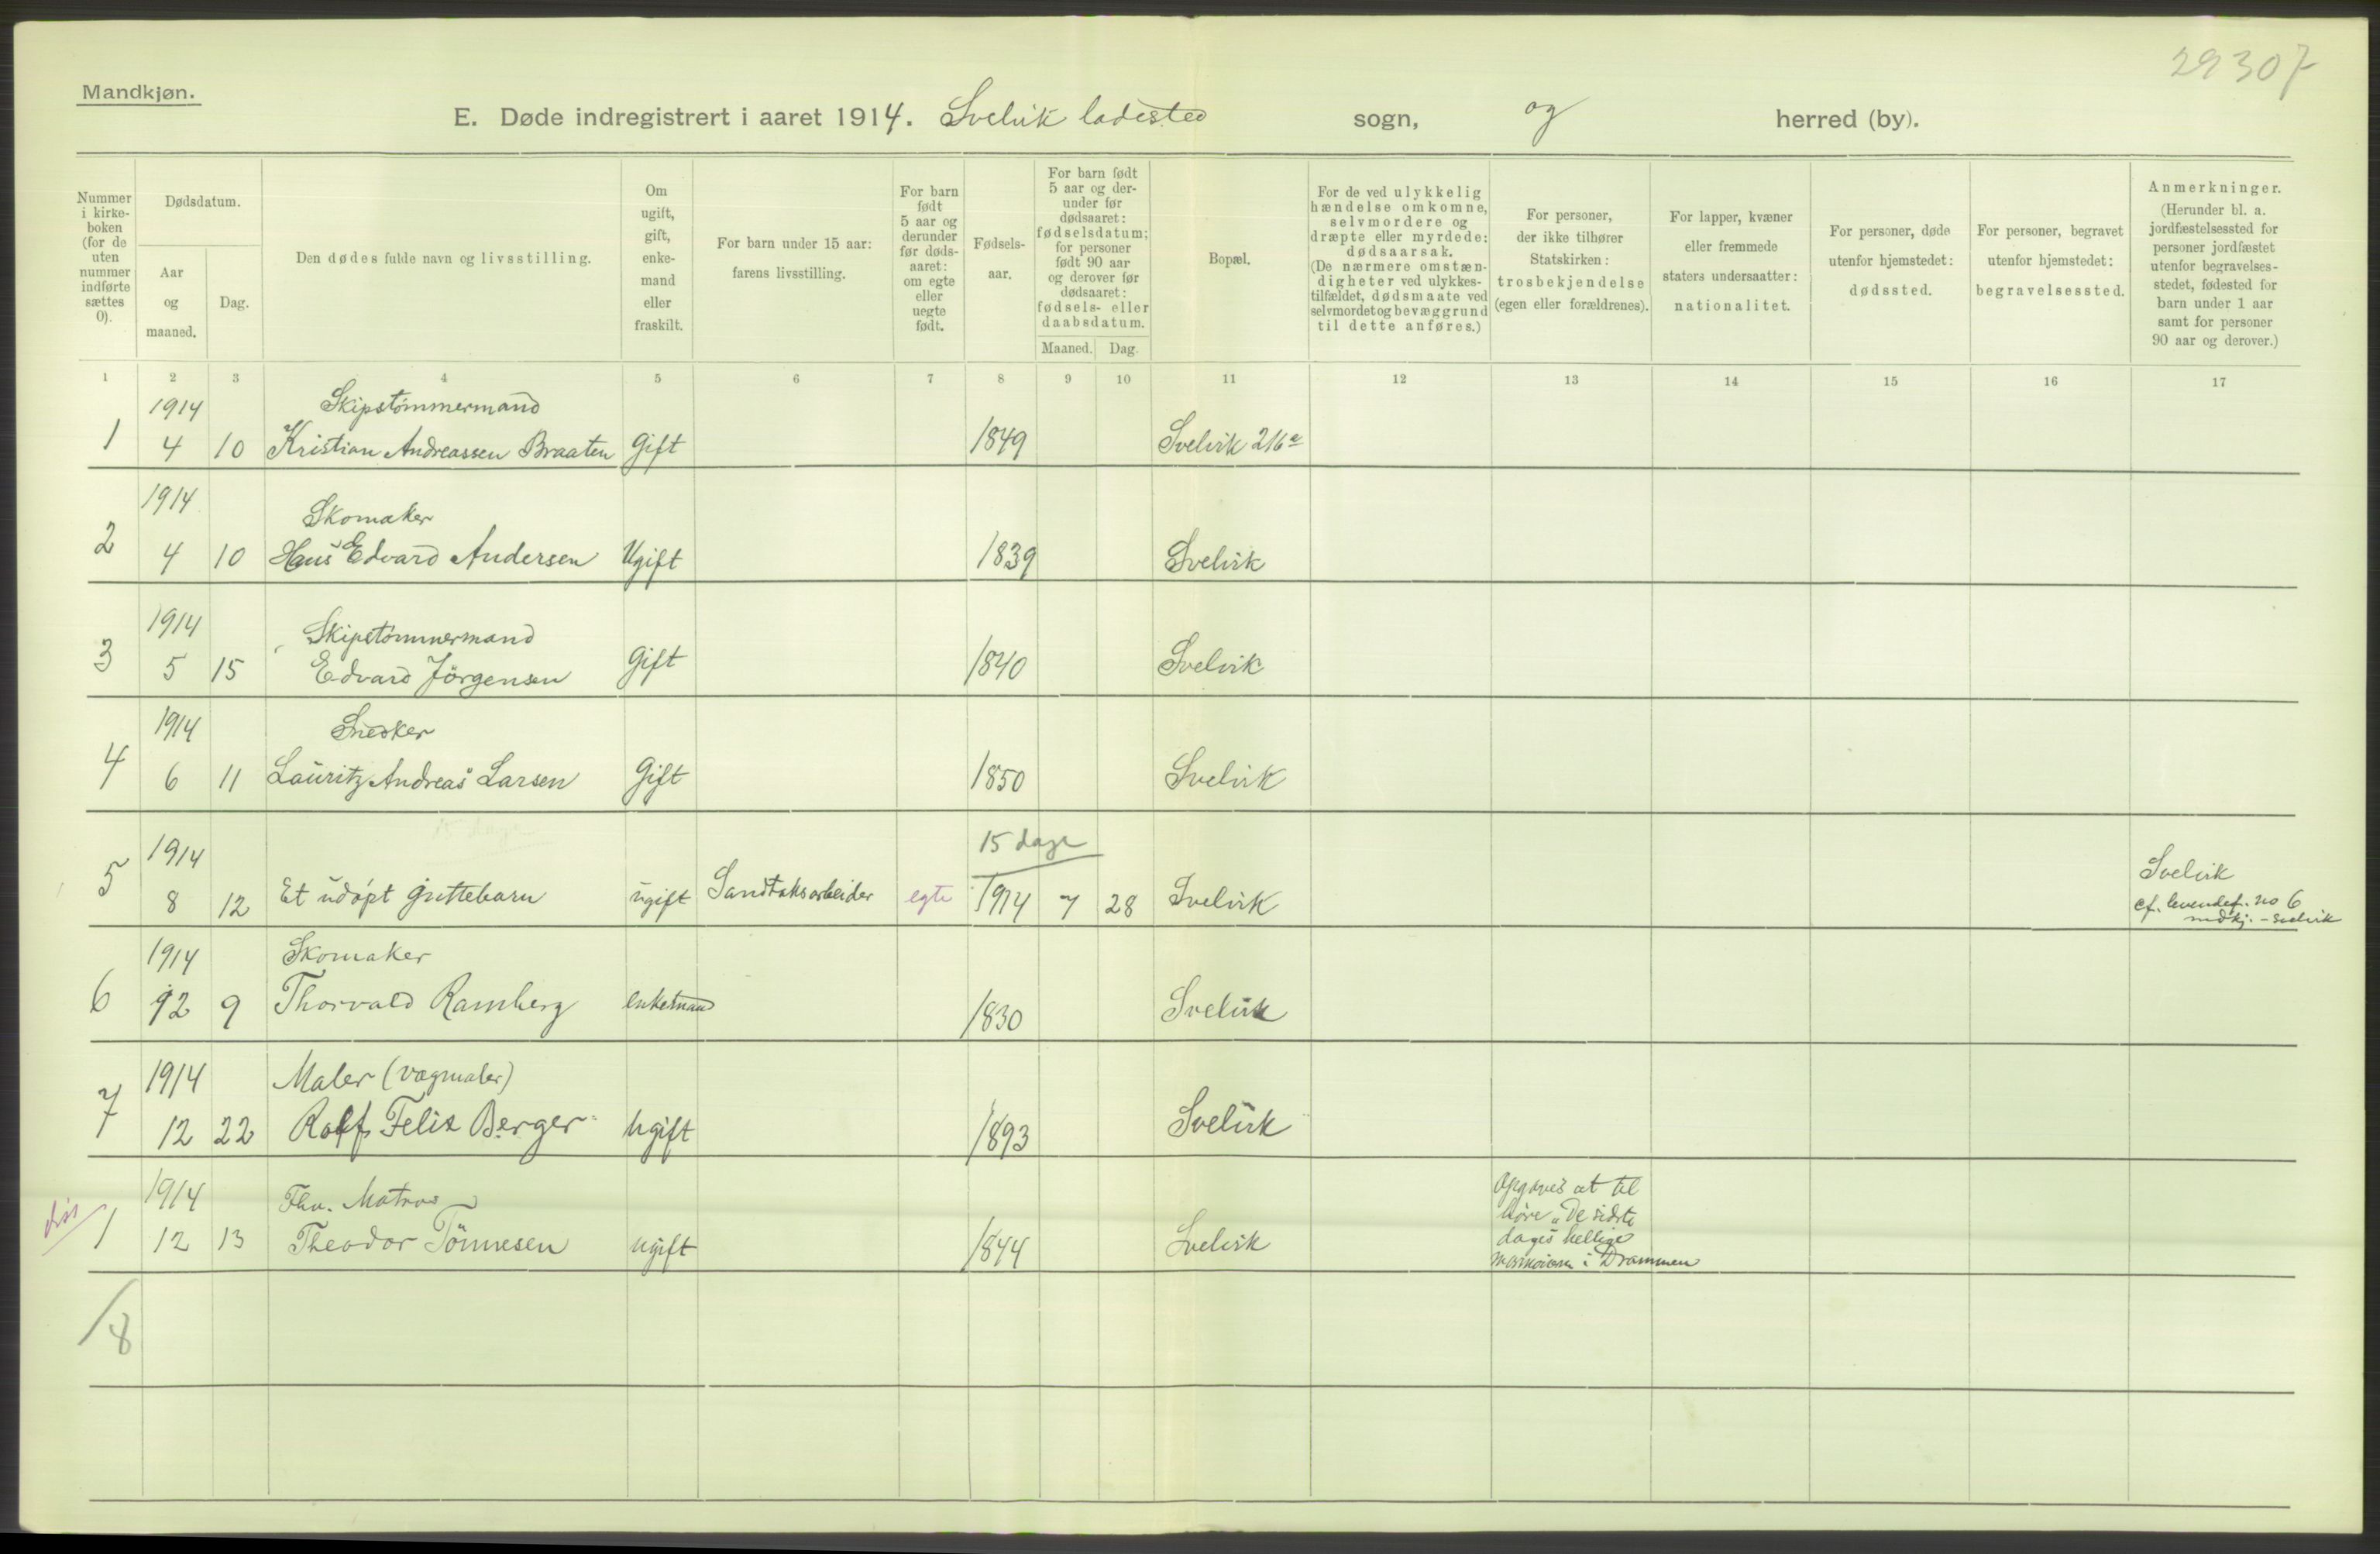 29307
Mandkjøn.
E. Døde indregistrert i aaret 1914. Svelvik ladested sogn, og herred (by).
Nummer i kirke-boken (for de uten nummer indførte sættes 0).
Dødsdatum.
Aar og maaned.
Dag.
Den dødes fulde navn og livsstilling.
Om ugift, gift, enke-mand eller fraskilt.
For barn under 15 aar: farens livsstilling.
For barn født 5 aar og derunder før døds-aaret: om egte eller uegte født.
Fødsels-aar.
For barn født 5 aar og der-under før dødsaaret: fødselsdatum; for personer født 90 aar og derover før dødsaaret: fødsels- eller daabsdatum.
Maaned. Dag.
Bopæl.
For de ved ulykkelig hændelse omkomne, selvmordere og dræpte eller myrdede: dødsaarsak. (De nærmere omstæn-digheter ved ulykkes-tilfældet, dødsmaate ved selvmordet og bevæggrund til dette anføres.)
For personer, der ikke tilhører Statskirken: trosbekjendelse (egen eller forældrenes).
For lapper, kvæner eller fremmede staters undersaatter: nationalitet.
For personer, døde utenfor hjemstedet: dødssted.
For personer, begravet utenfor hjemstedet: begravelsessted.
Anmerkninger. (Herunder bl. a. jordfæstelsessted for personer jordfæstet utenfor begravelses-stedet, fødested for barn under 1 aar samt for personer 90 aar og derover.)
1 2 3 4 5 6 7 8 9 10 11 12 13 14 15 16 17
1914 Skipstømmermand
1 4 10 Kristian Andreassen Braaten Gift 1849 Svelvik 216a
1914 Skomaker
2 4 10 Hans Edvard Andersen Ugift 1839 Svelvik
1914 Skipstømmermand
3 5 15 Edvard Jörgensen Gift 1840 Svelvik
1914 Snedker
4 6 11 Lauritz Andreas Larsen Gift 1850 Svelvik
15 dage
1914 Svelvik
5 8 12 Et udøpt guttebarn ugift Sandtaksarbeider egte 1914 7 28 Svelvik cf. levendef. no 6
mdkj. - Svelvik
1914 Skomaker
6 12 9 Thorvald Ramberg enkemand 1830 Svelvik
1914 Maler (vogmaler)
7 12 22 Rolf Felix Berger Ugift 1893 Svelvik
1914 Fhv. Matros
diss 1 12 13 Theodor Tönnesen ugift 1844 Svelvik
Opgaves at til
höre "De sidste
dages hellige
i Drammen
/8